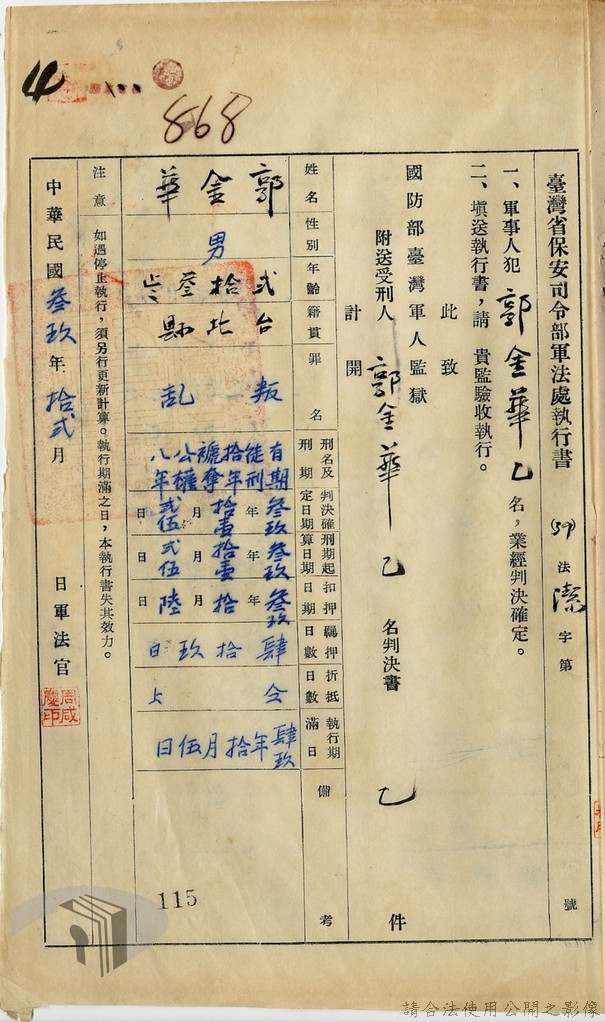 4
868
臺灣省保安司令部軍法處執行書 (39) 法 潔 字第 號
一、軍事人犯 郭金華 乙 名，業經判決確定。
二、填送執行書，請 貴監驗收執行。
此致
國防部臺灣軍人監獄
附送受刑人 郭金華 乙 名判決書 乙 件
計開
姓名 郭金華
性別 男
年齡 弍拾叁歲
籍貫 台北縣
罪名 叛乱
刑名及刑期 有期徒刑拾年褫奪公權八年
判決確定日期 叁玖年拾壹月弍伍日
刑期起算日期 叁玖年拾壹月弍伍日
扣押日期 叁玖年拾月陸日
羈押日數 肆拾玖日
折抵日數 仝上
執行期滿日 肆玖年拾月伍日
備考
115
注意 如遇停止執行，須另行更新計算。執行期滿之日，本執行書失其效力。
中華民國 叁玖 年 拾弍 月 日 軍法官
周咸慶印
請合法使用公開之影像